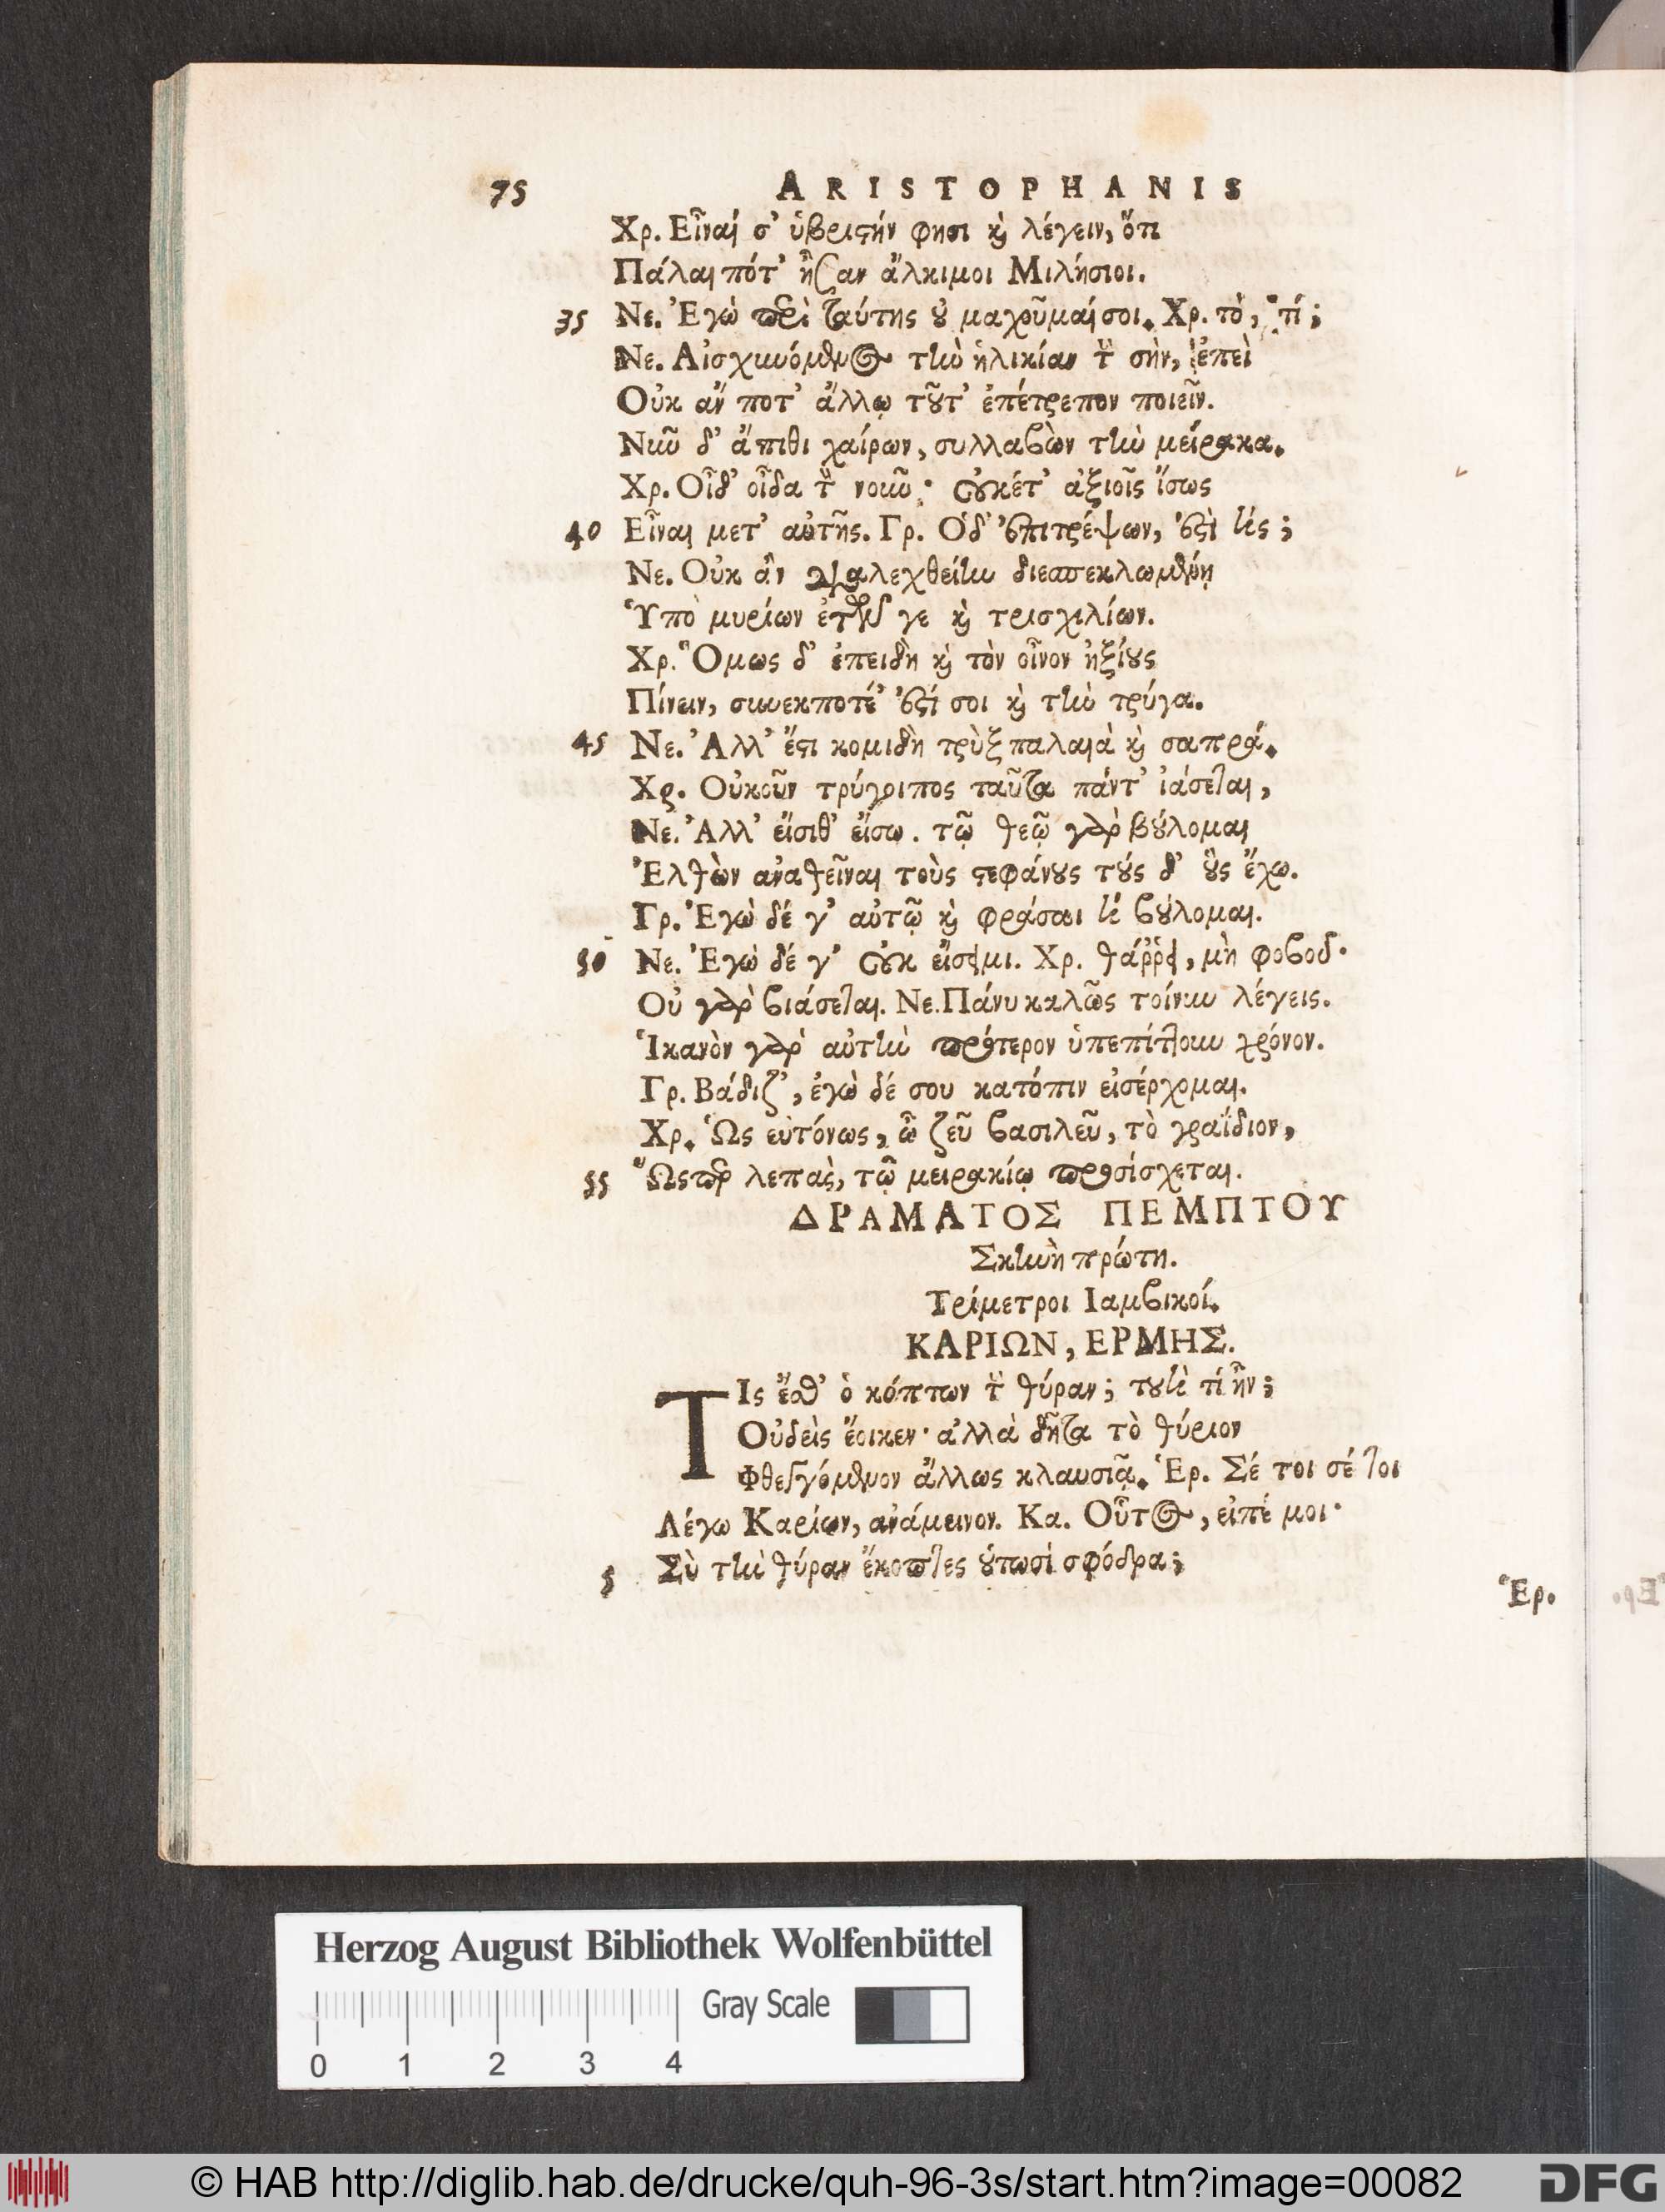 75 ARISTOPHANIS
Χρ. Εἶναί σ' ὑβριστήν φησι καὶ λέγειν, ὅτι
Πάλαι πότ' ἦσαν ἄλκιμοι Μιλήσιοι.
35 Νε. Ἐγὼ περὶ ταύτης οὐ μαχοῦμαί σοι. Χρ. τὸ, τί;
Νε. Αἰσχυνόμενος τὴν ἡλικίαν τὴν σὴν, ἐπεὶ
Οὐκ ἄν ποτ' ἄλλῳ τοῦτ' ἐπέτρεπον ποιεῖν.
Νῦν δ' ἄπιθι χαίρων, συλλαβὼν τὴν μείρακα.
Χρ. Οἶδ' οἶδα τὸν νοῦν· οὐκέτ' ἀξιοῖς ἴσως
40 Εἶναι μετ' αὐτῆς. Γρ. Ὁ δ' ἐπιτρέψων, ἐστὶ τίς;
Νε. Οὐκ ἂν διαλεχθείην διεσπεκλωμένῃ
Ὑπὸ μυρίων ἐτῶν γε καὶ τρισχιλίων.
Χρ. Ὅμως δ' ἐπειδὴ καὶ τὸν οἶνον ἠξίους
Πίνειν, συνεκποτέ' ἐστί σοι καὶ τὴν τρύγα.
45 Νε. Ἀλλ' ἔστι κομιδὴ τρὺξ παλαιὰ καὶ σαπρά.
Χρ. Οὐκοῦν τρύγοιπος ταῦτα πάντ' ἰάσεται,
Νε. Ἀλλ' εἴσιθ' εἴσω. τῷ θεῷ γὰρ βούλομαι
Ἐλθὼν ἀναθεῖναι τοὺς στεφάνους τούς δ' οὓς ἔχω.
Γρ. Ἐγὼ δέ γ' αὐτῷ καὶ φράσαι τί βούλομαι.
50 Νε. Ἐγὼ δέ γ' οὐκ εἴσειμι. Χρ. θάῤῥει, μὴ φοβοῦ·
Οὐ γὰρ βιάσεται. Νε. Πάνυ καλῶς τοίνυν λέγεις.
Ἱκανὸν γὰρ αὐτὴν πρότερον ὑπεπίττουν χρόνον.
Γρ. Βάδιζ', ἐγὼ δέ σου κατόπιν εἰσέρχομαι.
Χρ. Ὡς εὐτόνως, ὦ ζεῦ βασιλεῦ, τὸ γραΐδιον,
55 Ὥσπερ λεπὰς, τῷ μειρακίῳ προσίσχεται.
ΔΡΑΜΑΤΟΣ ΠΕΜΠΤΟΥ
Σκηνὴ πρώτη.
Τρίμετροι Ιαμβικοί.
ΚΑΡΙΩΝ, ΕΡΜΗΣ.
ΤΙς ἔσθ' ὁ κόπτων τὴν θύραν; τουτὶ τί ἦν;
Οὐδεὶς ἔοικεν· ἀλλὰ δῆτα τὸ θύριον
Φθεγγόμενον ἄλλως κλαυσιᾷ. Ἑρ. Σέ τοι σέ τοι
Λέγω Καρίων, ἀνάμεινον. Κα. Οὗτος, εἰπέ μοι·
5 Σὺ τὴν θύραν ἔκοπτες οὑτωσὶ σφόδρα;
Ἑρ.
Herzog August Bibliothek Wolfenbüttel
Gray Scale
0 1 2 3 4
© HAB http://diglib.hab.de/drucke/quh-96-3s/start.htm?image=00082
DFG